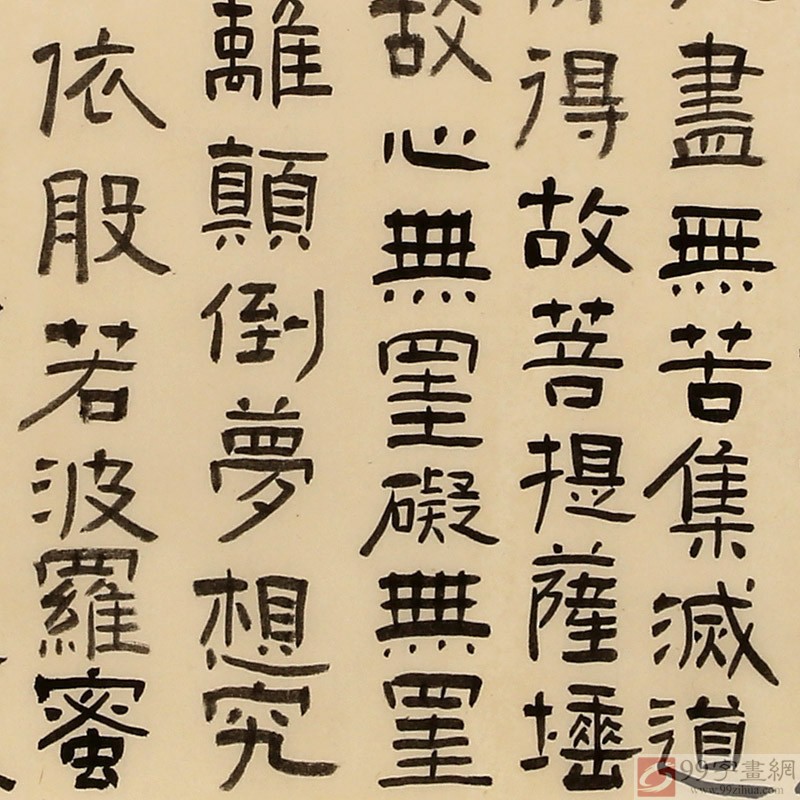 盡無苦集滅道
得故菩提薩埵
故心無罣礙無罣
離顛倒夢想究
依般若波羅蜜
99字畫網
www.99zihua.com